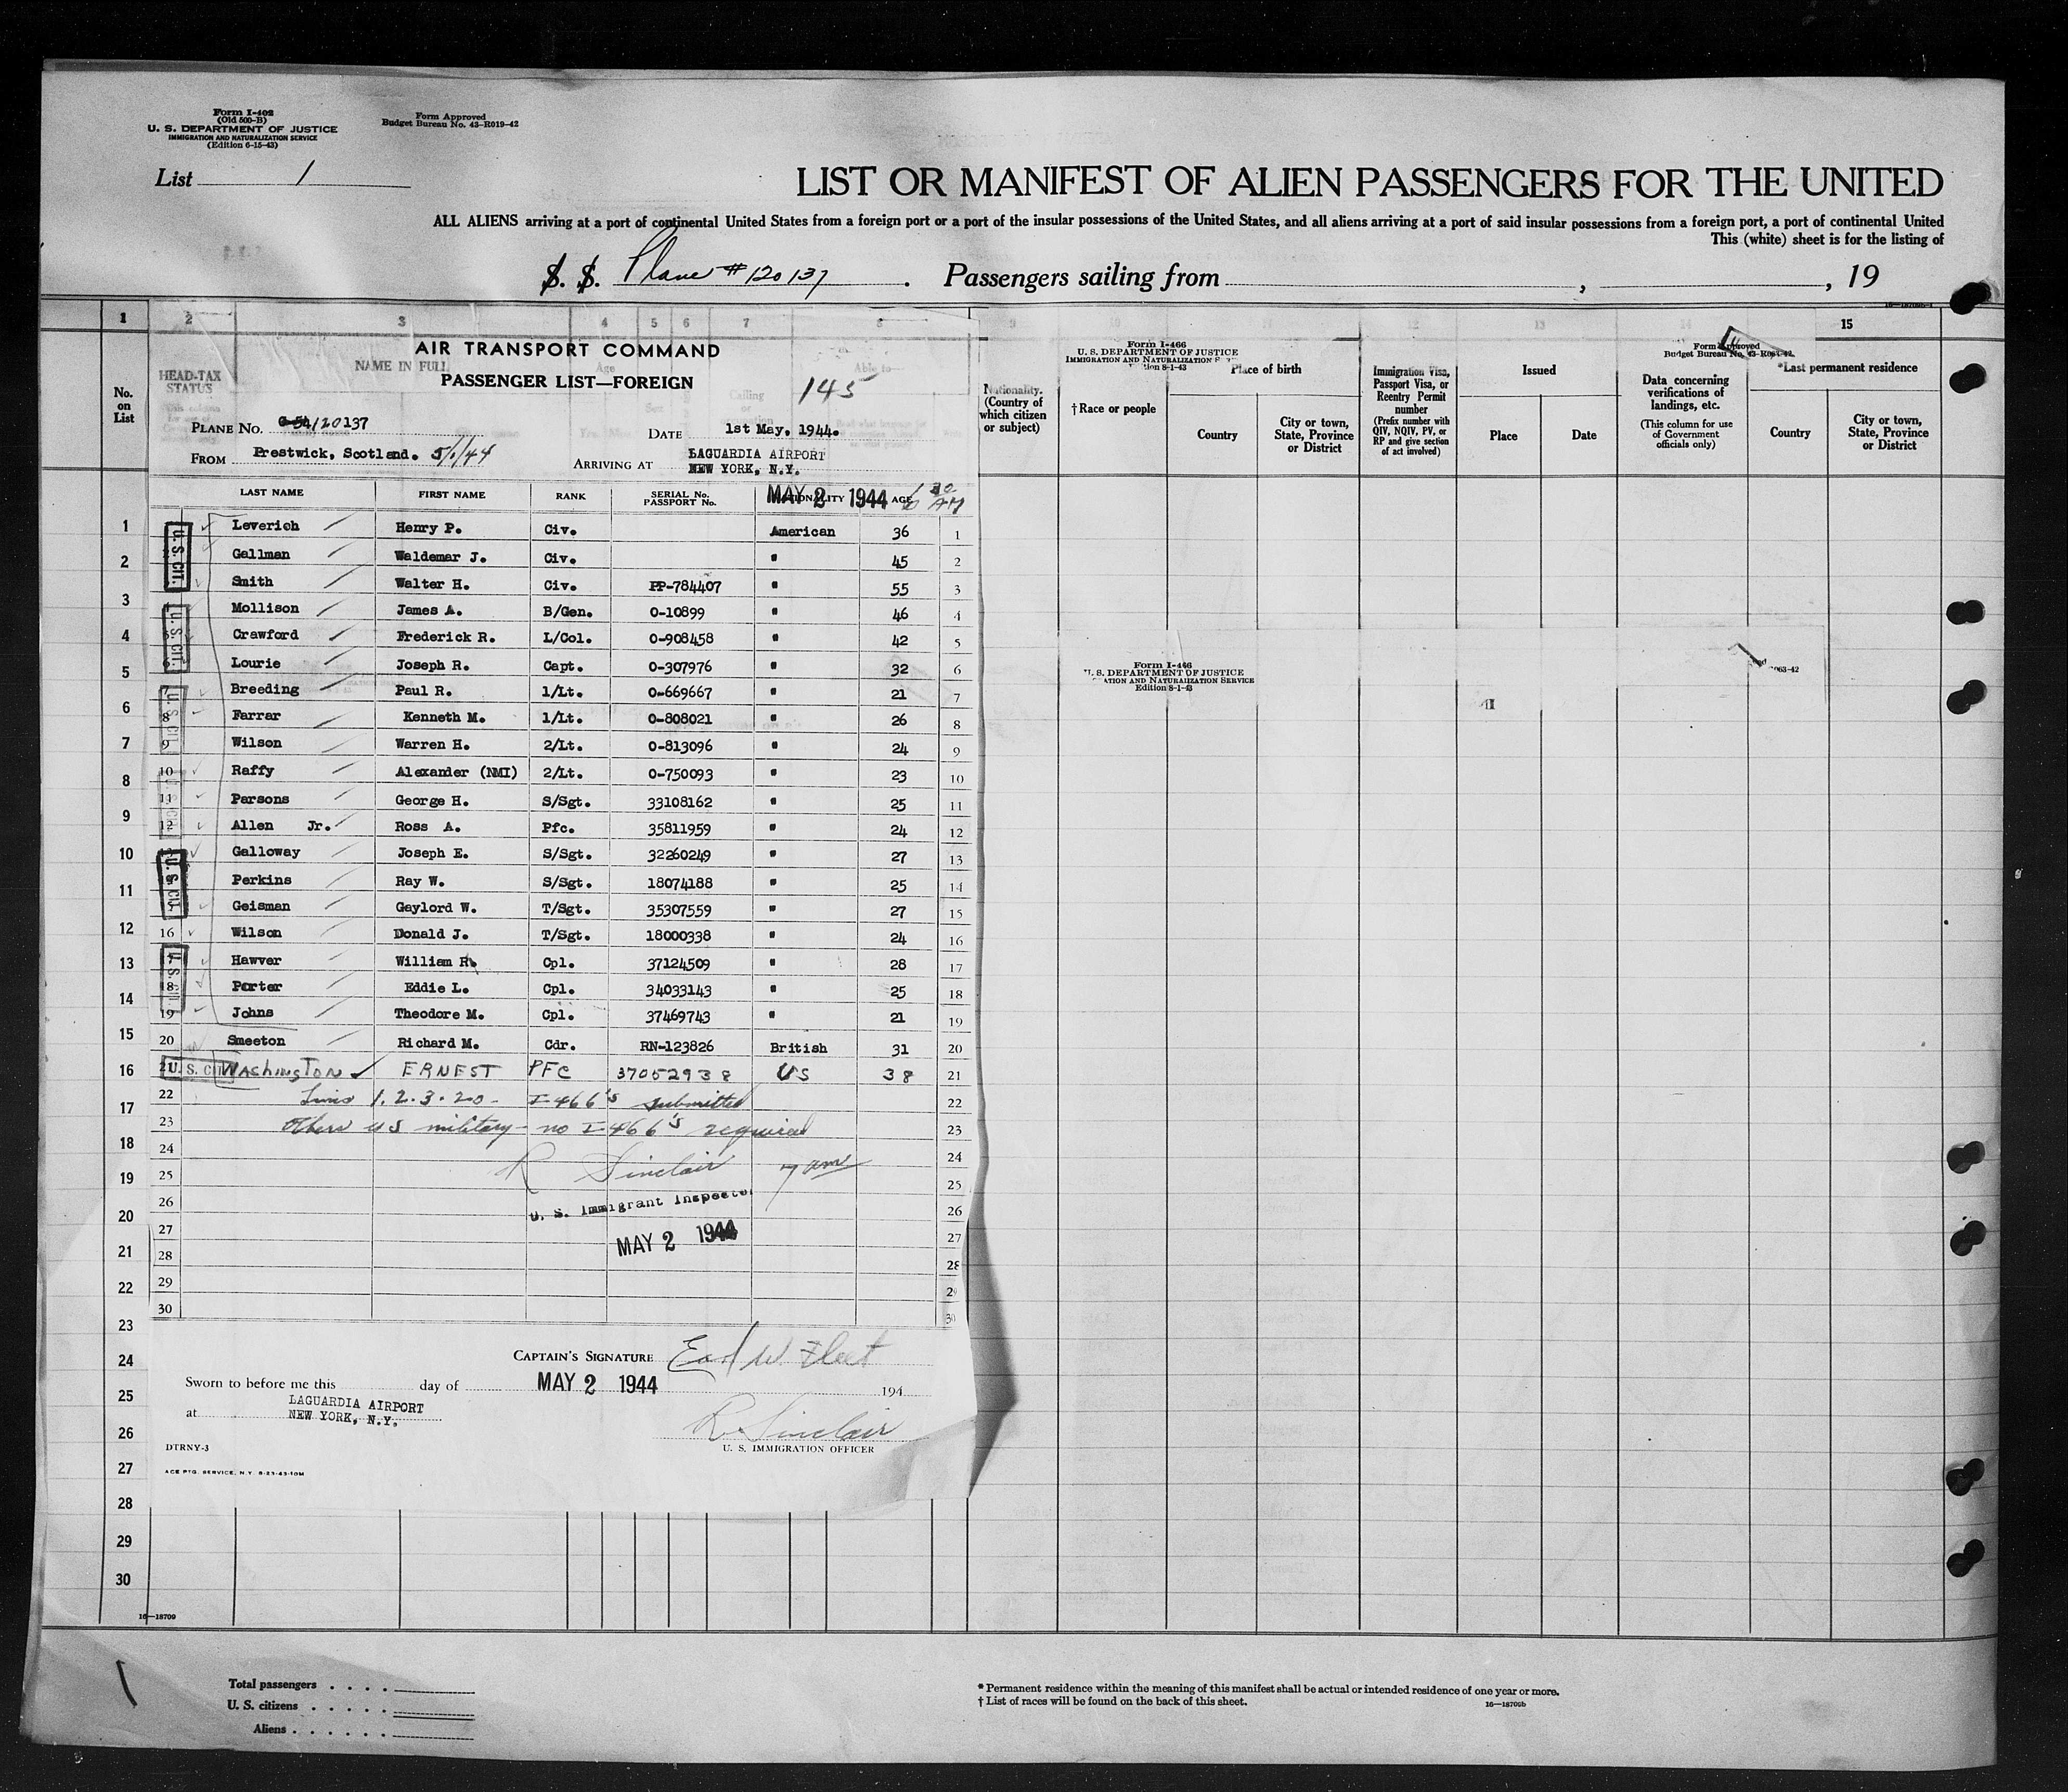 Form I-402
(Old 500-B)
U. S. DEPARTMENT OF JUSTICE
IMMIGRATION AND NATURALIZATION SERVICE
(Edition 6-15-43)
Form Approved
Budget Bureau No. 43-R019-42
List 1
LIST OR MANIFEST OF ALIEN PASSENGERS FOR THE UNITED
ALL ALIENS arriving at a port of continental United States from a foreign port or a port of the insular possessions of the United States, and all aliens arriving at a port of said insular possessions from a foreign port, a port of continental United
This (white) sheet is for the listing of
S. S. Plane # 120137 . Passengers sailing from , , 19
1 2 3 4 5 6 7 8 9 10 11 12 13 14 15
No. on List
HEAD-TAX STATUS
NAME IN FULL
Age
Sex
Calling or
Able to—
Nationality. (Country of which citizen or subject)
†Race or people
Place of birth
Country
City or town, State, Province or District
Immigration Visa, Passport Visa, or Reentry Permit number
(Prefix number with QIV, NQIV, PV, or RP and give section of act involved)
Issued
Place
Date
Data concerning verifications of landings, etc.
(This column for use of Government officials only)
*Last permanent residence
Country
City or town, State, Province or District
Form I-466
U. S. DEPARTMENT OF JUSTICE
IMMIGRATION AND NATURALIZATION
8-1-43
Form Approved
Budget Bureau No. 43-R063-42.
Form I-466
U. S. DEPARTMENT OF JUSTICE
NATURALIZATION SERVICE
Edition 8-1-43
063-42
AIR TRANSPORT COMMAND
PASSENGER LIST—FOREIGN
145
PLANE NO. C-54/120137
DATE 1st May, 1944.
FROM Prestwick, Scotland. 5/1/44
ARRIVING AT LAGUARDIA AIRPORT
NEW YORK, N.Y.
MAY 2 1944 6 30 AM
LAST NAME FIRST NAME RANK SERIAL No. PASSPORT No. NATIONALITY AGE
Leverich Henry P. Civ. American 36 1
Gallman Waldemar J. Civ. " 45 2
Smith Walter H. Civ. PP-784407 " 55 3
Mollison James A. B/Gen. O-10899 " 46 4
Crawford Frederick R. L/Col. O-908458 " 42 5
Lourie Joseph R. Capt. O-307976 " 32 6
Breeding Paul R. 1/Lt. O-669667 " 21 7
8 Farrar Kenneth M. 1/Lt. O-808021 " 26 8
9 Wilson Warren H. 2/Lt. O-813096 " 24 9
10 Raffy Alexander (NMI) 2/Lt. O-750093 " 23 10
11 Parsons George H. S/Sgt. 33108162 " 25 11
12 Allen Jr. Ross A. Pfc. 35811959 " 24 12
Galloway Joseph E. S/Sgt. 32260249 " 27 13
Perkins Ray W. S/Sgt. 18074188 " 25 14
Geisman Gaylord W. T/Sgt. 35307559 " 27 15
16 Wilson Donald J. T/Sgt. 18000338 " 24 16
Hawver William R. Cpl. 37124509 " 28 17
18 Porter Eddie L. Cpl. 34033143 " 25 18
19 Johns Theodore M. Cpl. 37469743 " 21 19
20 Smeeton Richard M. Cdr. RN-123826 British 31 20
21 Washington ERNEST PFC 37052938 US 38 21
22 Lines 1.2.3.20- I-466's submitted 22
23 Others US military - no I-466's required 23
24 24
25 R Sinclair 7 am 25
26 U. S. Immigrant Inspector 26
27 MAY 2 1944 27
28 28
29 29
30 30
U.S. CIT.
U.S. CIT.
U.S. CIT.
U.S. CIT.
U.S. CIT.
U.S. CIT.
CAPTAIN'S SIGNATURE Earl W. Fleet
Sworn to before me this day of MAY 2 1944 194
at LAGUARDIA AIRPORT
NEW YORK, N.Y.
R. Sinclair
U. S. IMMIGRATION OFFICER
DTRNY-3
ACE PTG. SERVICE, N.Y. 8-23-43-10M
1
2
3
4
5
6
7
8
9
10
11
12
13
14
15
16
17
18
19
20
21
22
23
24
25
26
27
28
29
30
16—18709
Total passengers . . . .
U. S. citizens . . . . .
Aliens . . . . . .
* Permanent residence within the meaning of this manifest shall be actual or intended residence of one year or more.
† List of races will be found on the back of this sheet.
16—18709b